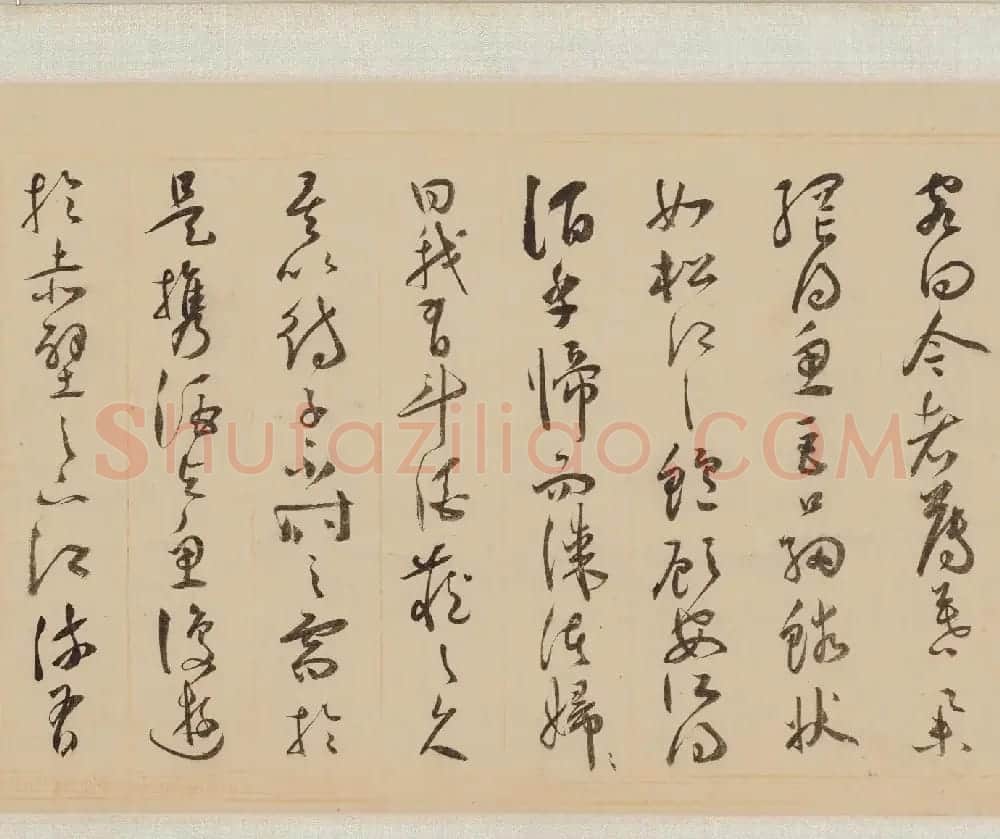 客曰今者薄暮舉
網得魚巨口細鱗狀
如松江之鱸顧安所得
酒乎歸而謀諸婦〻
曰我有斗酒藏之久
矣以待子不時之需於
是攜酒與魚復遊
於赤壁之下江流有
Shufaziliao.COM